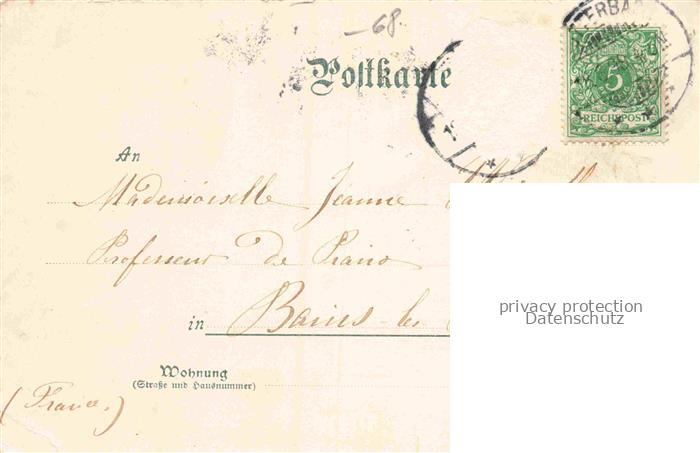 -68.
Postkarte
ERBA
5
REICHSPOST
An
Mademoiselle Jeanne
Professeur de Piano
in Bains-les
privacy protection
Datenschutz
Wohnung
(Straße und Hausnummer)
(France.)